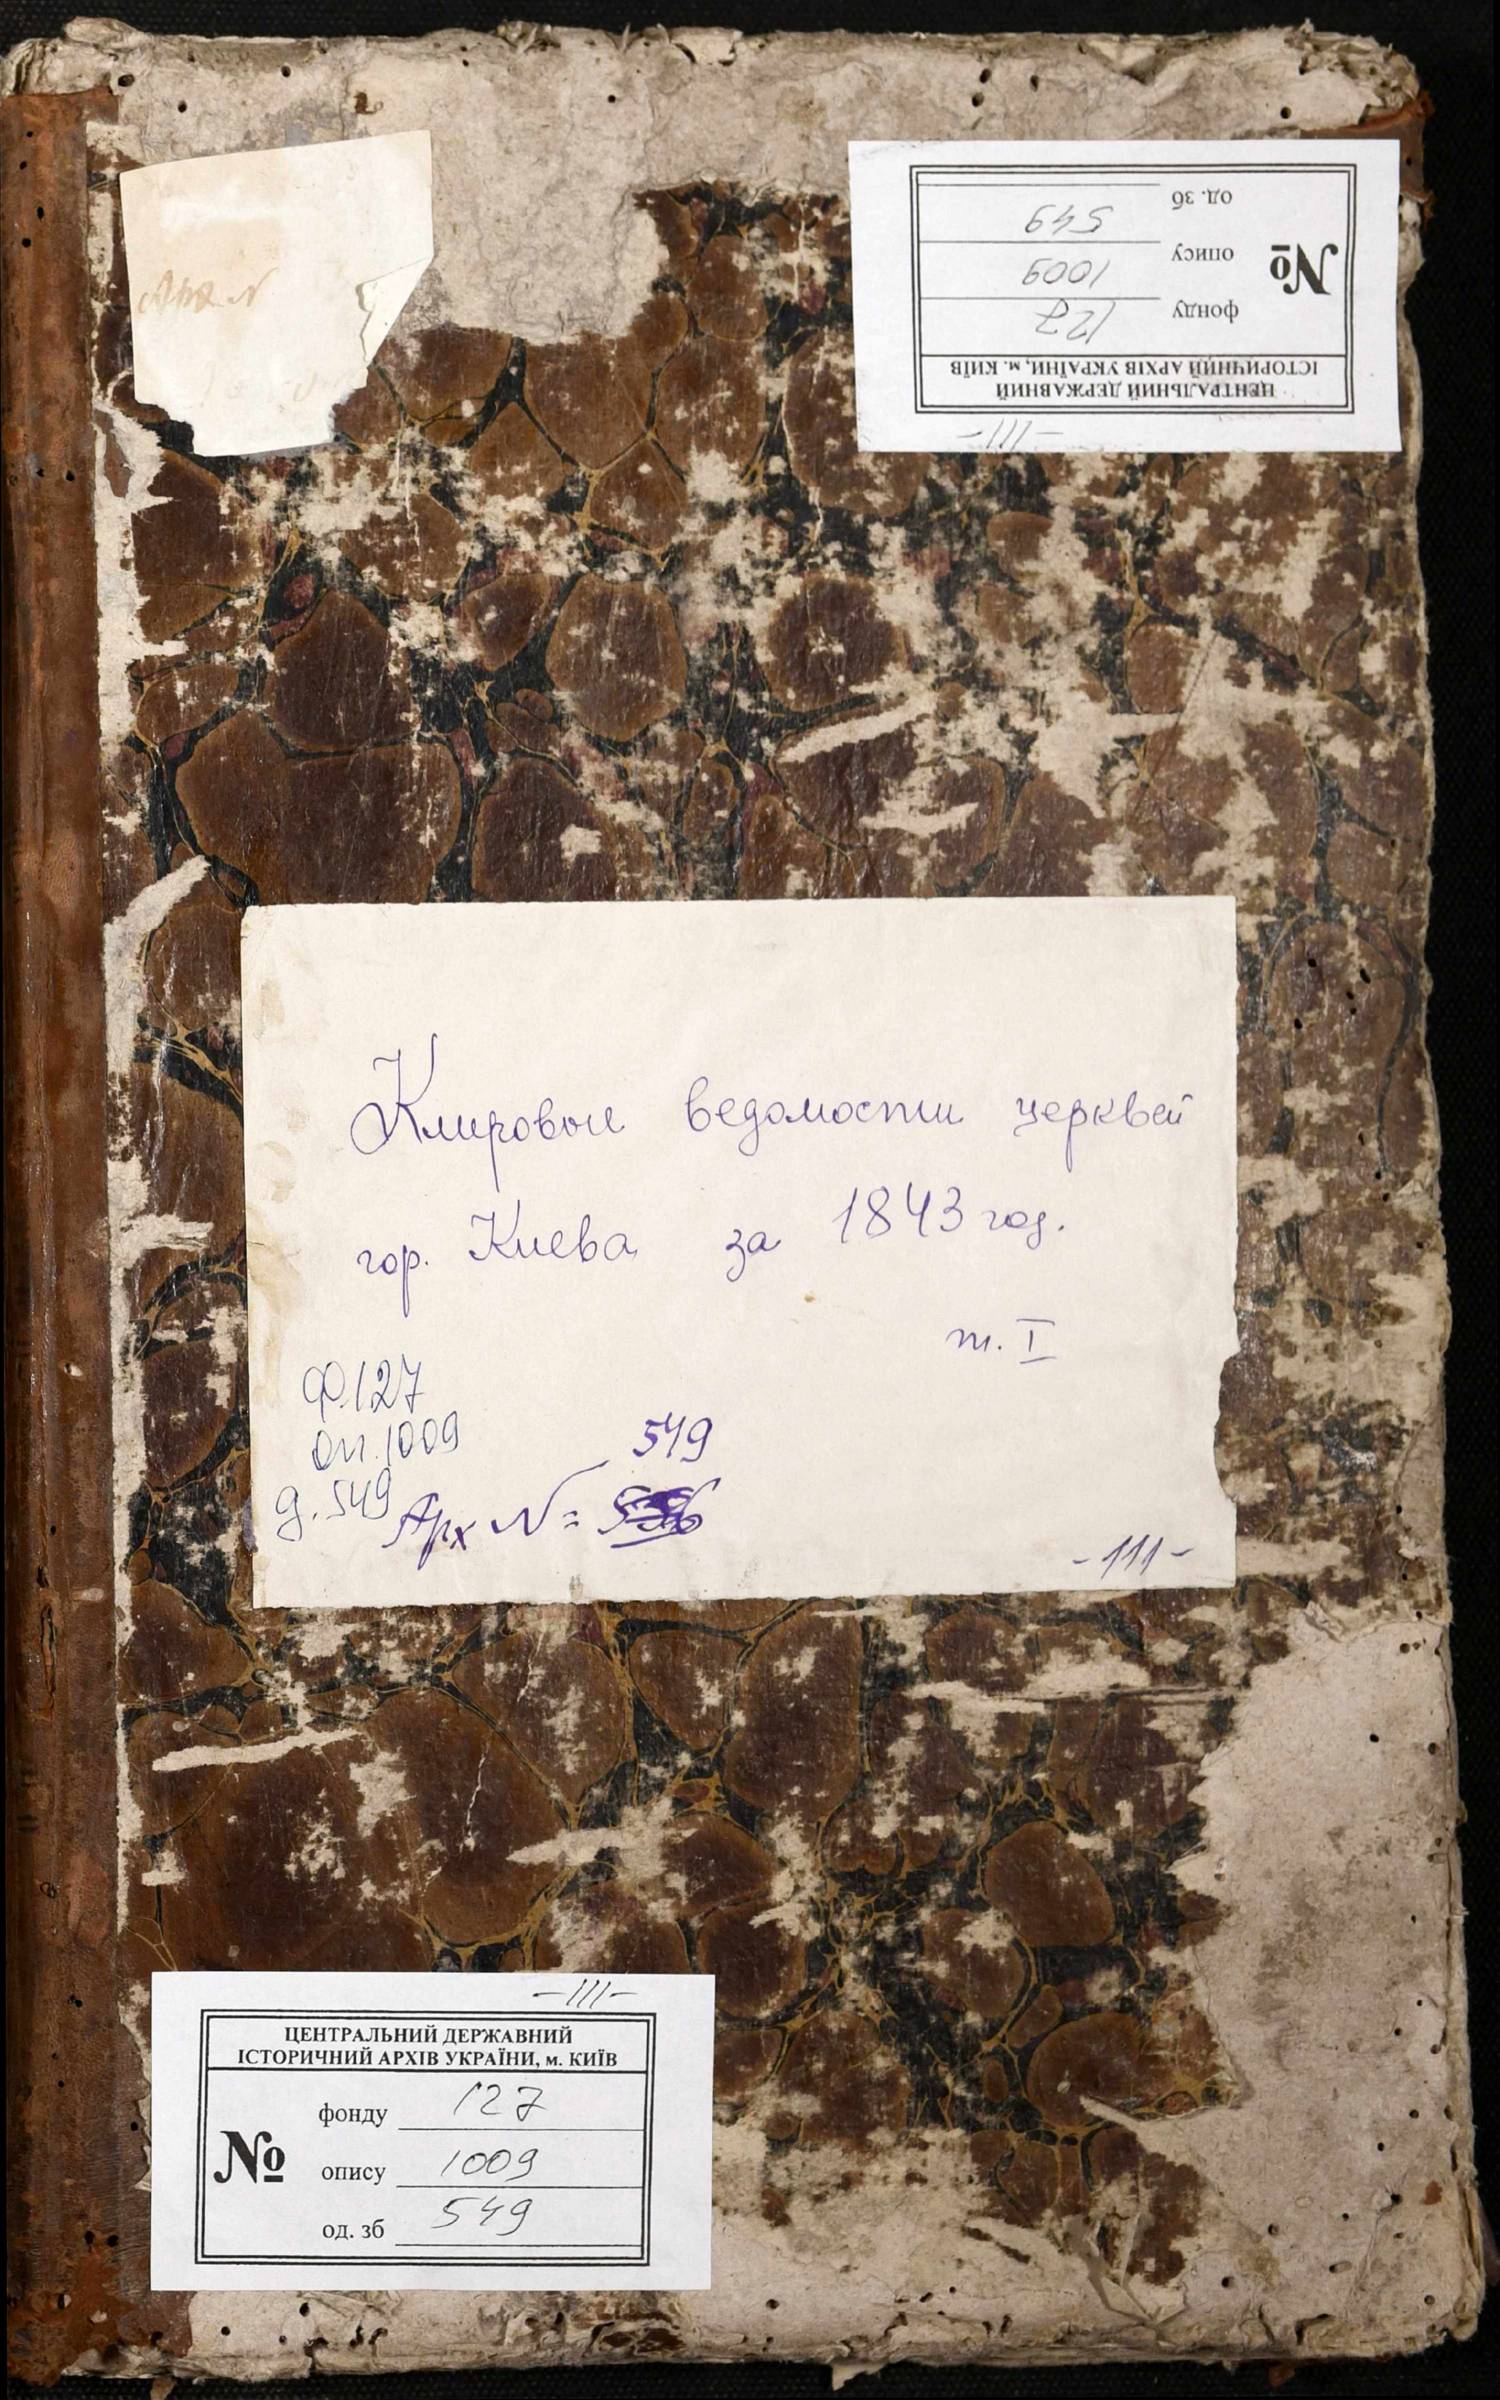 Арх №
-111-
ЦЕНТРАЛЬНИЙ ДЕРЖАВНИЙ
ІСТОРИЧНИЙ АРХІВ УКРАЇНИ, м. КИЇВ
№
фонду 127
опису 1009
од. зб 549
Клировые ведомости церквей
гор. Киева за 1843 год.
т. I
Ф.127
оп.1009
д.549
549
Арх №
-111-
-111-
ЦЕНТРАЛЬНИЙ ДЕРЖАВНИЙ
ІСТОРИЧНИЙ АРХІВ УКРАЇНИ, м. КИЇВ
№
фонду 127
опису 1009
од. зб 549